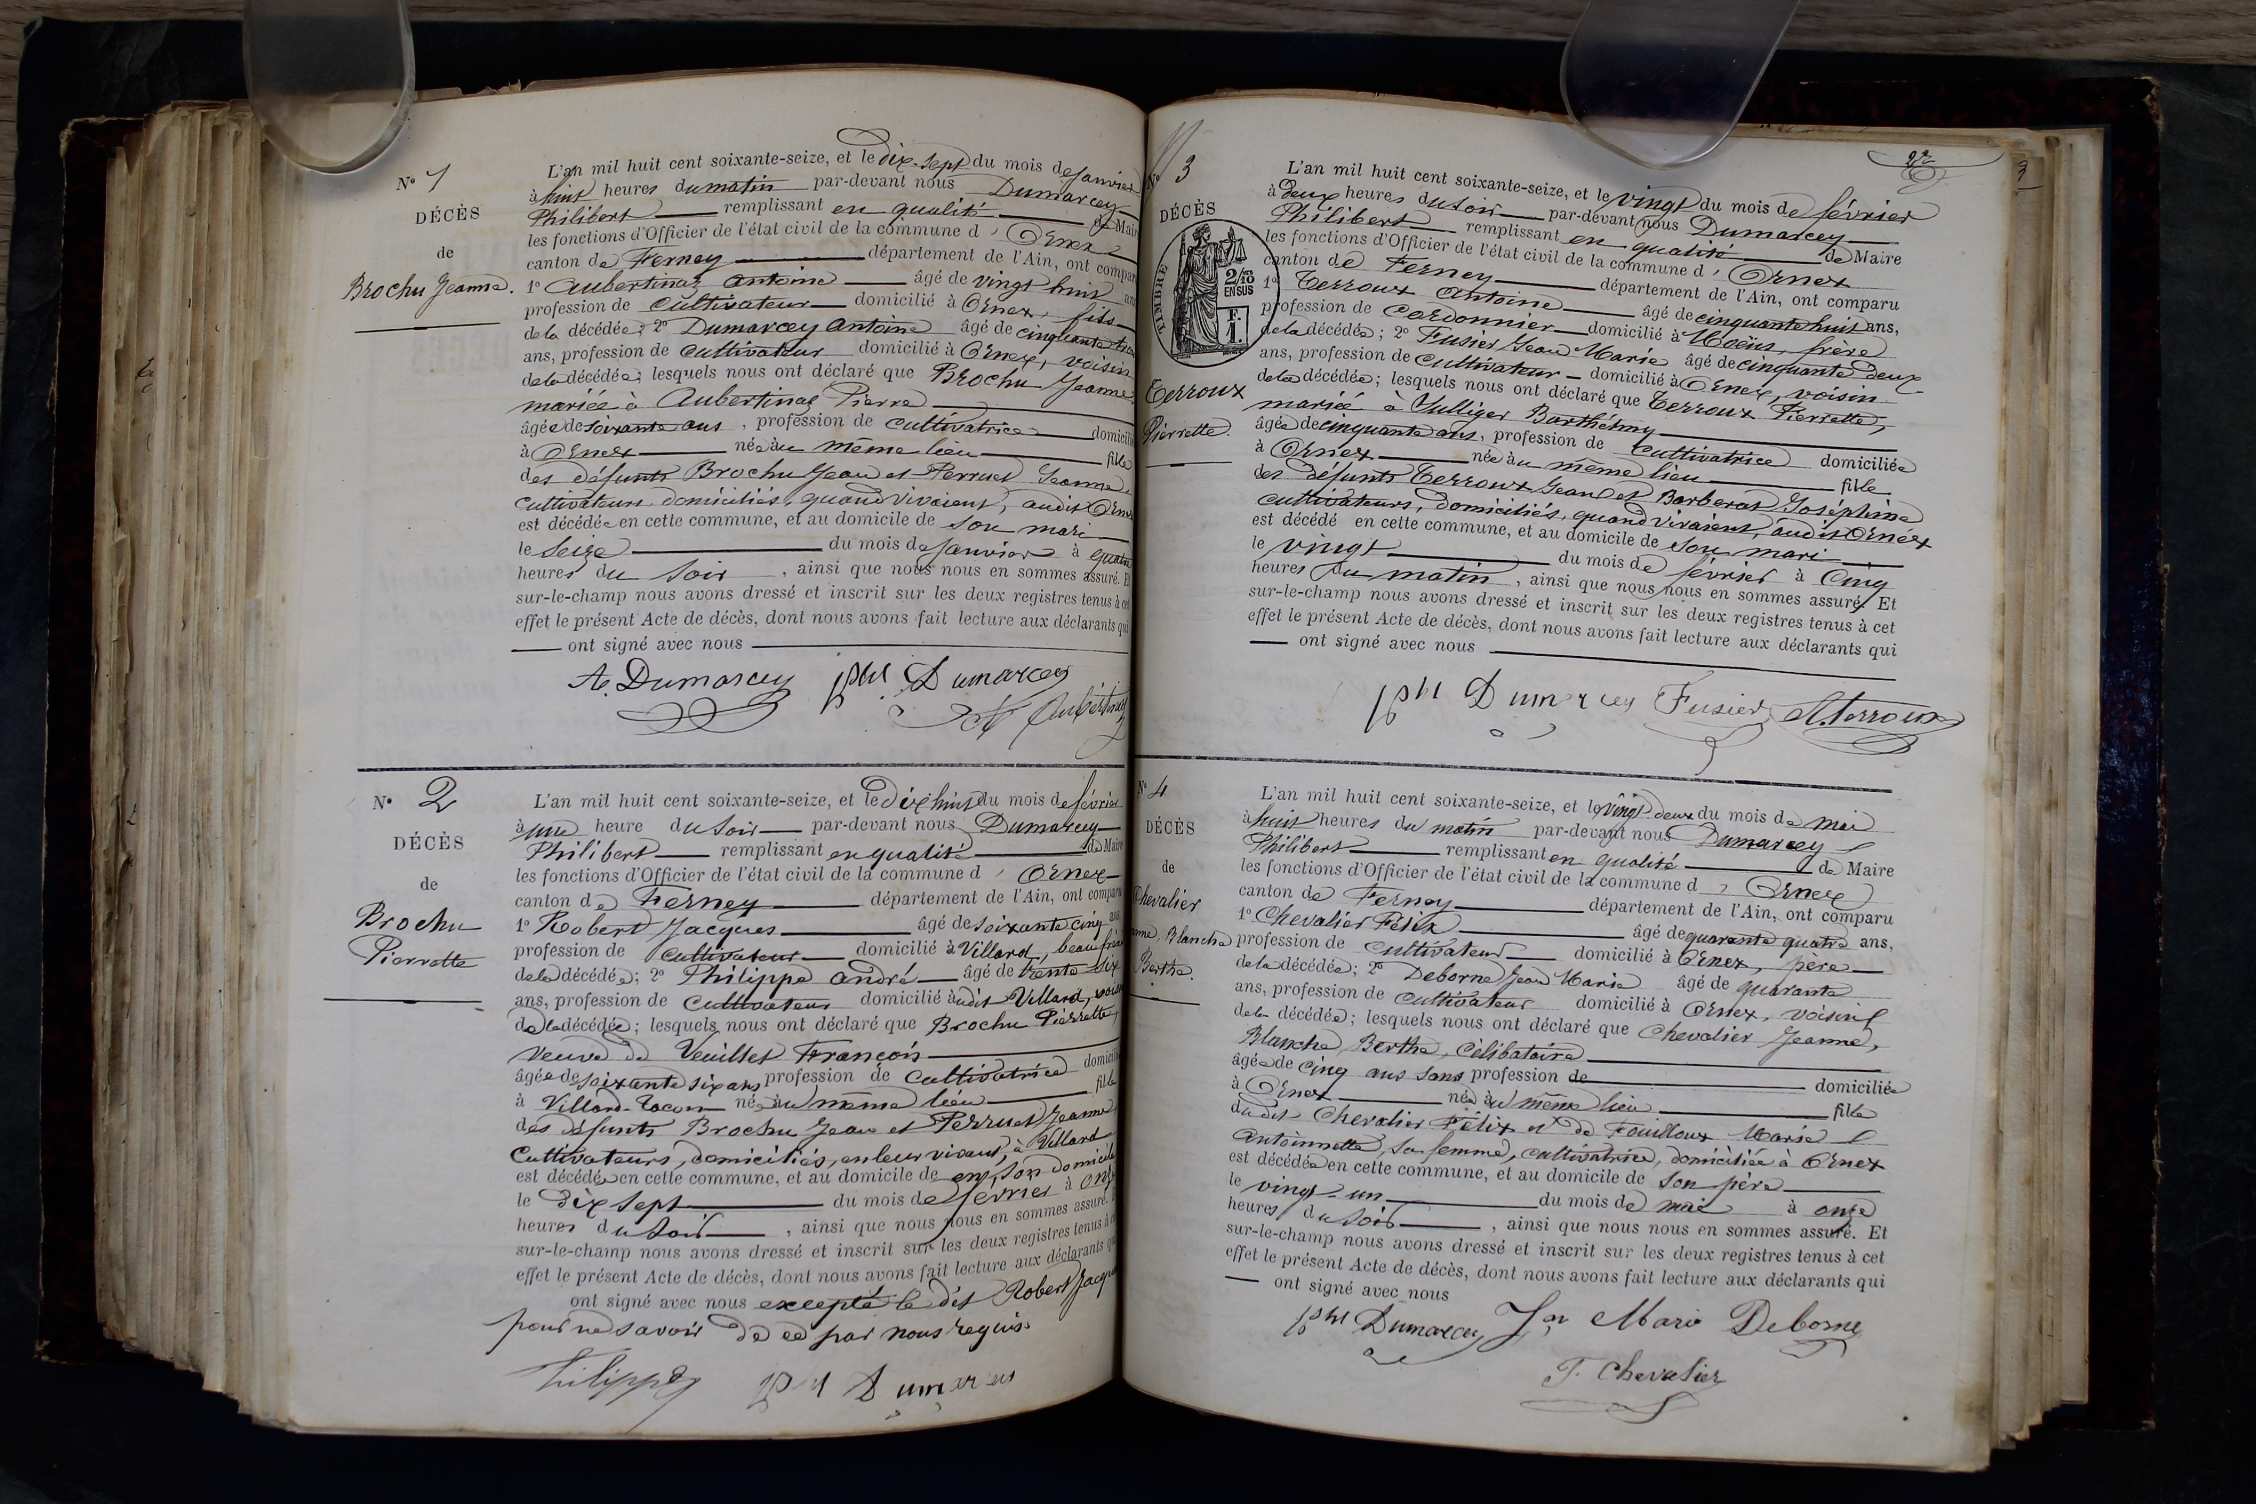 N° 1
DÉCÈS
de
Brochu Jeanne.
L'an mil huit cent soixante-seize, et le dix-sept du mois de janvier
à huit heures du matin par-devant nous Dumarcey
Philibert remplissant en qualité de Maire
les fonctions d'Officier de l'état civil de la commune d'Ornex
canton de Ferney département de l'Ain, ont comparu
1° Aubertinaz Antoine âgé de vingt huit ans
profession de cultivateur domicilié à Ornex, fils
de la décédée; 2° Dumarcey Antoine âgé de cinquante trois
ans, profession de cultivateur domicilié à Ornex, voisin
de la décédée; lesquels nous ont déclaré que Brochu Jeanne,
mariée à Aubertinaz Pierre
âgée de soixante ans, profession de cultivatrice domicilié
à Ornex née au même lieu fille
des défunts Brochu Jean et Perruet Jeanne,
cultivateurs domiciliés, quand vivaient, audit Ornex
est décédée en cette commune, et au domicile de son mari
le seize du mois de janvier à quatre
heures du soir, ainsi que nous nous en sommes assuré. Et
sur-le-champ nous avons dressé et inscrit sur les deux registres tenus à cet
effet le présent Acte de décès, dont nous avons fait lecture aux déclarants qui
ont signé avec nous
At. Dumarcey phi Dumarcey
At Aubertinaz
N° 2
DÉCÈS
de
Brochu
Pierrette
L'an mil huit cent soixante-seize, et le dix huit du mois de février
à une heure du soir par-devant nous Dumarcey
Philibert remplissant en qualité de Maire
les fonctions d'Officier de l'état civil de la commune d'Ornex
canton de Ferney département de l'Ain, ont comparu
1° Robert Jacques âgé de soixante cinq ans
profession de cultivateur domicilié à Villard, beau frère
de la décédée; 2° Philippe André âgé de trente six
ans, profession de cultivateur domicilié audit Villard, voisin
de la décédée; lesquels nous ont déclaré que Brochu Pierrette,
veuve de Veuillet François
âgée de soixante six ans profession de cultivatrice domicilié
à Villard-Tacon née au même lieu fille
des défunts Brochu Jean et Perruet Jeanne
cultivateurs, domiciliés, en leur vivant, à Villard
est décédée en cette commune, et au domicile de en son domicile
le dix sept du mois de février à onze
heures du soir, ainsi que nous nous en sommes assuré.
sur-le-champ nous avons dressé et inscrit sur les deux registres tenus à cet
effet le présent Acte de décès, dont nous avons fait lecture aux déclarants qui
ont signé avec nous excepté le dit Robert Jacques
pour ne savoir de ce par nous requis.
Philippe phi Dumarcey
2e
3
N° 3
DÉCÈS
TIMBRE
2/10
EN SUS
F.
1.
Terroux
Pierrette.
L'an mil huit cent soixante-seize, et le vingt du mois de février
à deux heures du soir par-devant nous Dumarcey
Philibert remplissant en qualité de Maire
les fonctions d'Officier de l'état civil de la commune d'Ornex
canton de Ferney département de l'Ain, ont comparu
1° Terroux Antoine âgé de cinquante huit ans,
profession de cordonnier domicilié à Moëns, frère
de la décédée; 2° Fusier Jean Marie âgé de cinquante deux
ans, profession de cultivateur domicilié à Ornex, voisin
de la décédée; lesquels nous ont déclaré que Terroux Pierrette,
mariée à Sulliger Barthélemy
âgée de cinquante ans, profession de cultivatrice domiciliée
à Ornex née au même lieu fille
des défunts Terroux Jean et Barberat Joséphine
cultivateurs, domiciliés, quand vivaient, audit Ornex
est décédé en cette commune, et au domicile de son mari
le vingt du mois de février à cinq
heures du matin, ainsi que nous nous en sommes assuré. Et
sur-le-champ nous avons dressé et inscrit sur les deux registres tenus à cet
effet le présent Acte de décès, dont nous avons fait lecture aux déclarants qui
ont signé avec nous
phi Dumarcey Fusier A. Terroux
N° 4
DÉCÈS
de
Chevalier
Jeanne, Blanche
Berthe.
L'an mil huit cent soixante-seize, et le vingt-deux du mois de mai
à huit heures du matin par-devant nous Dumarcey
Philibert remplissant en qualité de Maire
les fonctions d'Officier de l'état civil de la commune d'Ornex
canton de Ferney département de l'Ain, ont comparu
1° Chevalier Félix âgé de quarante quatre ans,
profession de cultivateur domicilié à Ornex, père
de la décédée; 2° Deborne Jean Marie âgé de quarante
ans, profession de cultivateur domicilié à Ornex, voisin
de la décédée; lesquels nous ont déclaré que Chevalier Jeanne,
Blanche, Berthe, célibataire
âgée de cinq ans sans profession de domiciliée
à Ornex née au même lieu fille
dudit Chevalier Félix et de Fouilloux Marie
Antoinnette, sa femme, cultivatrice, domiciliée à Ornex
est décédée en cette commune, et au domicile de son père
le vingt-un du mois de mai à onze
heures du soir, ainsi que nous nous en sommes assuré. Et
sur-le-champ nous avons dressé et inscrit sur les deux registres tenus à cet
effet le présent Acte de décès, dont nous avons fait lecture aux déclarants qui
ont signé avec nous
phi Dumarcey Jn Marie Deborne
F. Chevalier